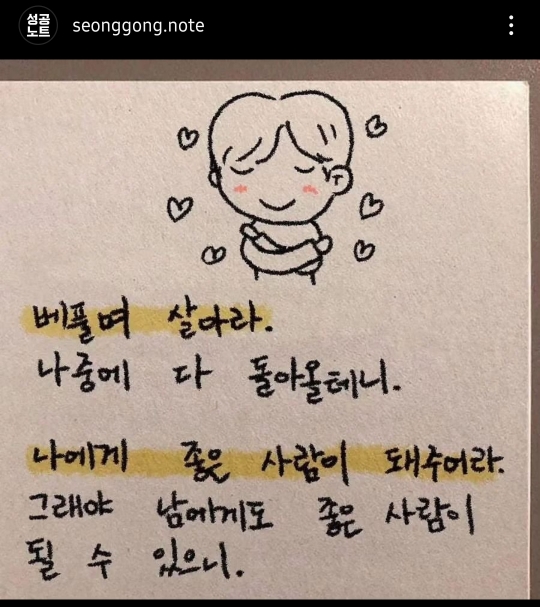 성공
노트
seonggong.note
베풀며 살아라.
나중에 다 돌아올테니.
나에게 좋은 사람이 돼주어라.
그래야 남에게도 좋은 사람이
될 수 있으니.